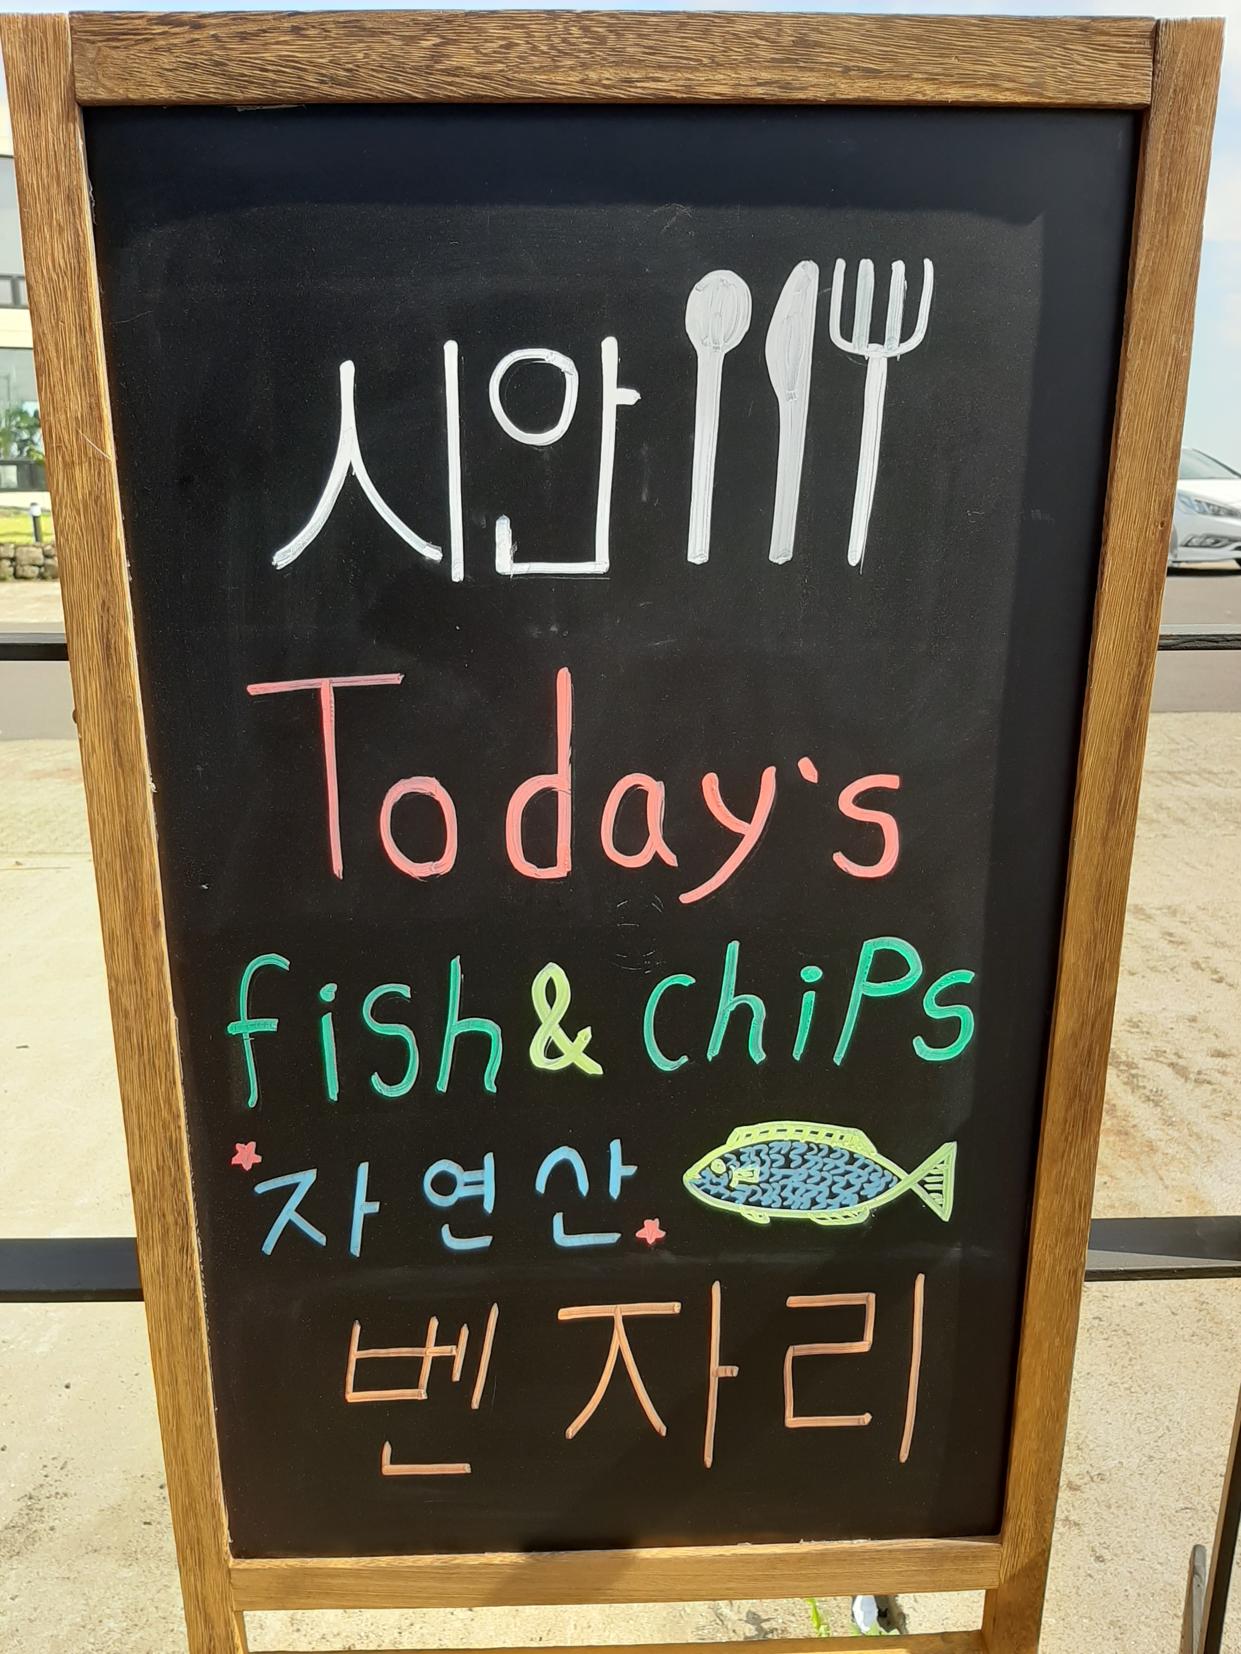 시안
Today's
fish & chips
자연산
벤자리